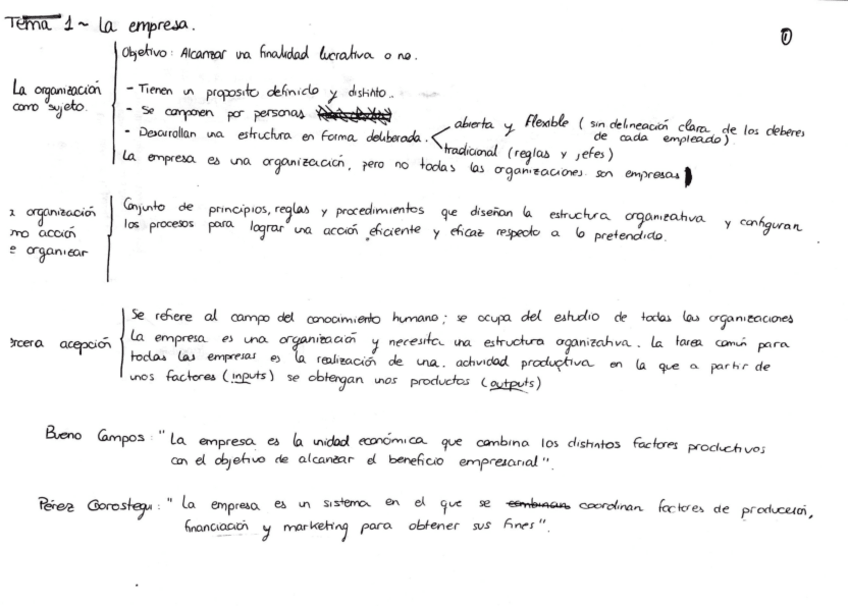 Tema 1 ~ La empresa.
1
Objetivo: Alcanzar una finalidad lucrativa o no.
La organización
como sujeto.
- Tienen un proposito definido y distinto.
- Se componen por personas
- Desarrollan una estructura en forma deliberada.
abierta y flexible (sin delineación clara de los deberes
de cada empleado)
tradicional (reglas y jefes)
La empresa es una organización, pero no todas las organizaciones son empresas
organización
mo acción
e organizar
Conjunto de principios, reglas y procedimientos que diseñan la estructura organizativa y configuran
los procesos para lograr una acción eficiente y eficaz respecto a lo pretendido.
rcera acepción
Se refiere al campo del conocimiento humano; se ocupa del estudio de todas las organizaciones
La empresa es una organización y necesita una estructura organizativa. La tarea común para
todas las empresas es la realización de una actividad productiva en la que a partir de
unos factores (inputs) se obtengan unos productos (outputs)
Bueno Campos: "La empresa es la unidad económica que combina los distintos factores productivos
con el objetivo de alcanzar el beneficio empresarial".
Pérez Gorostegui: "La empresa es un sistema en el que se combinan coordinan factores de produccion,
financiación y marketing para obtener sus fines".